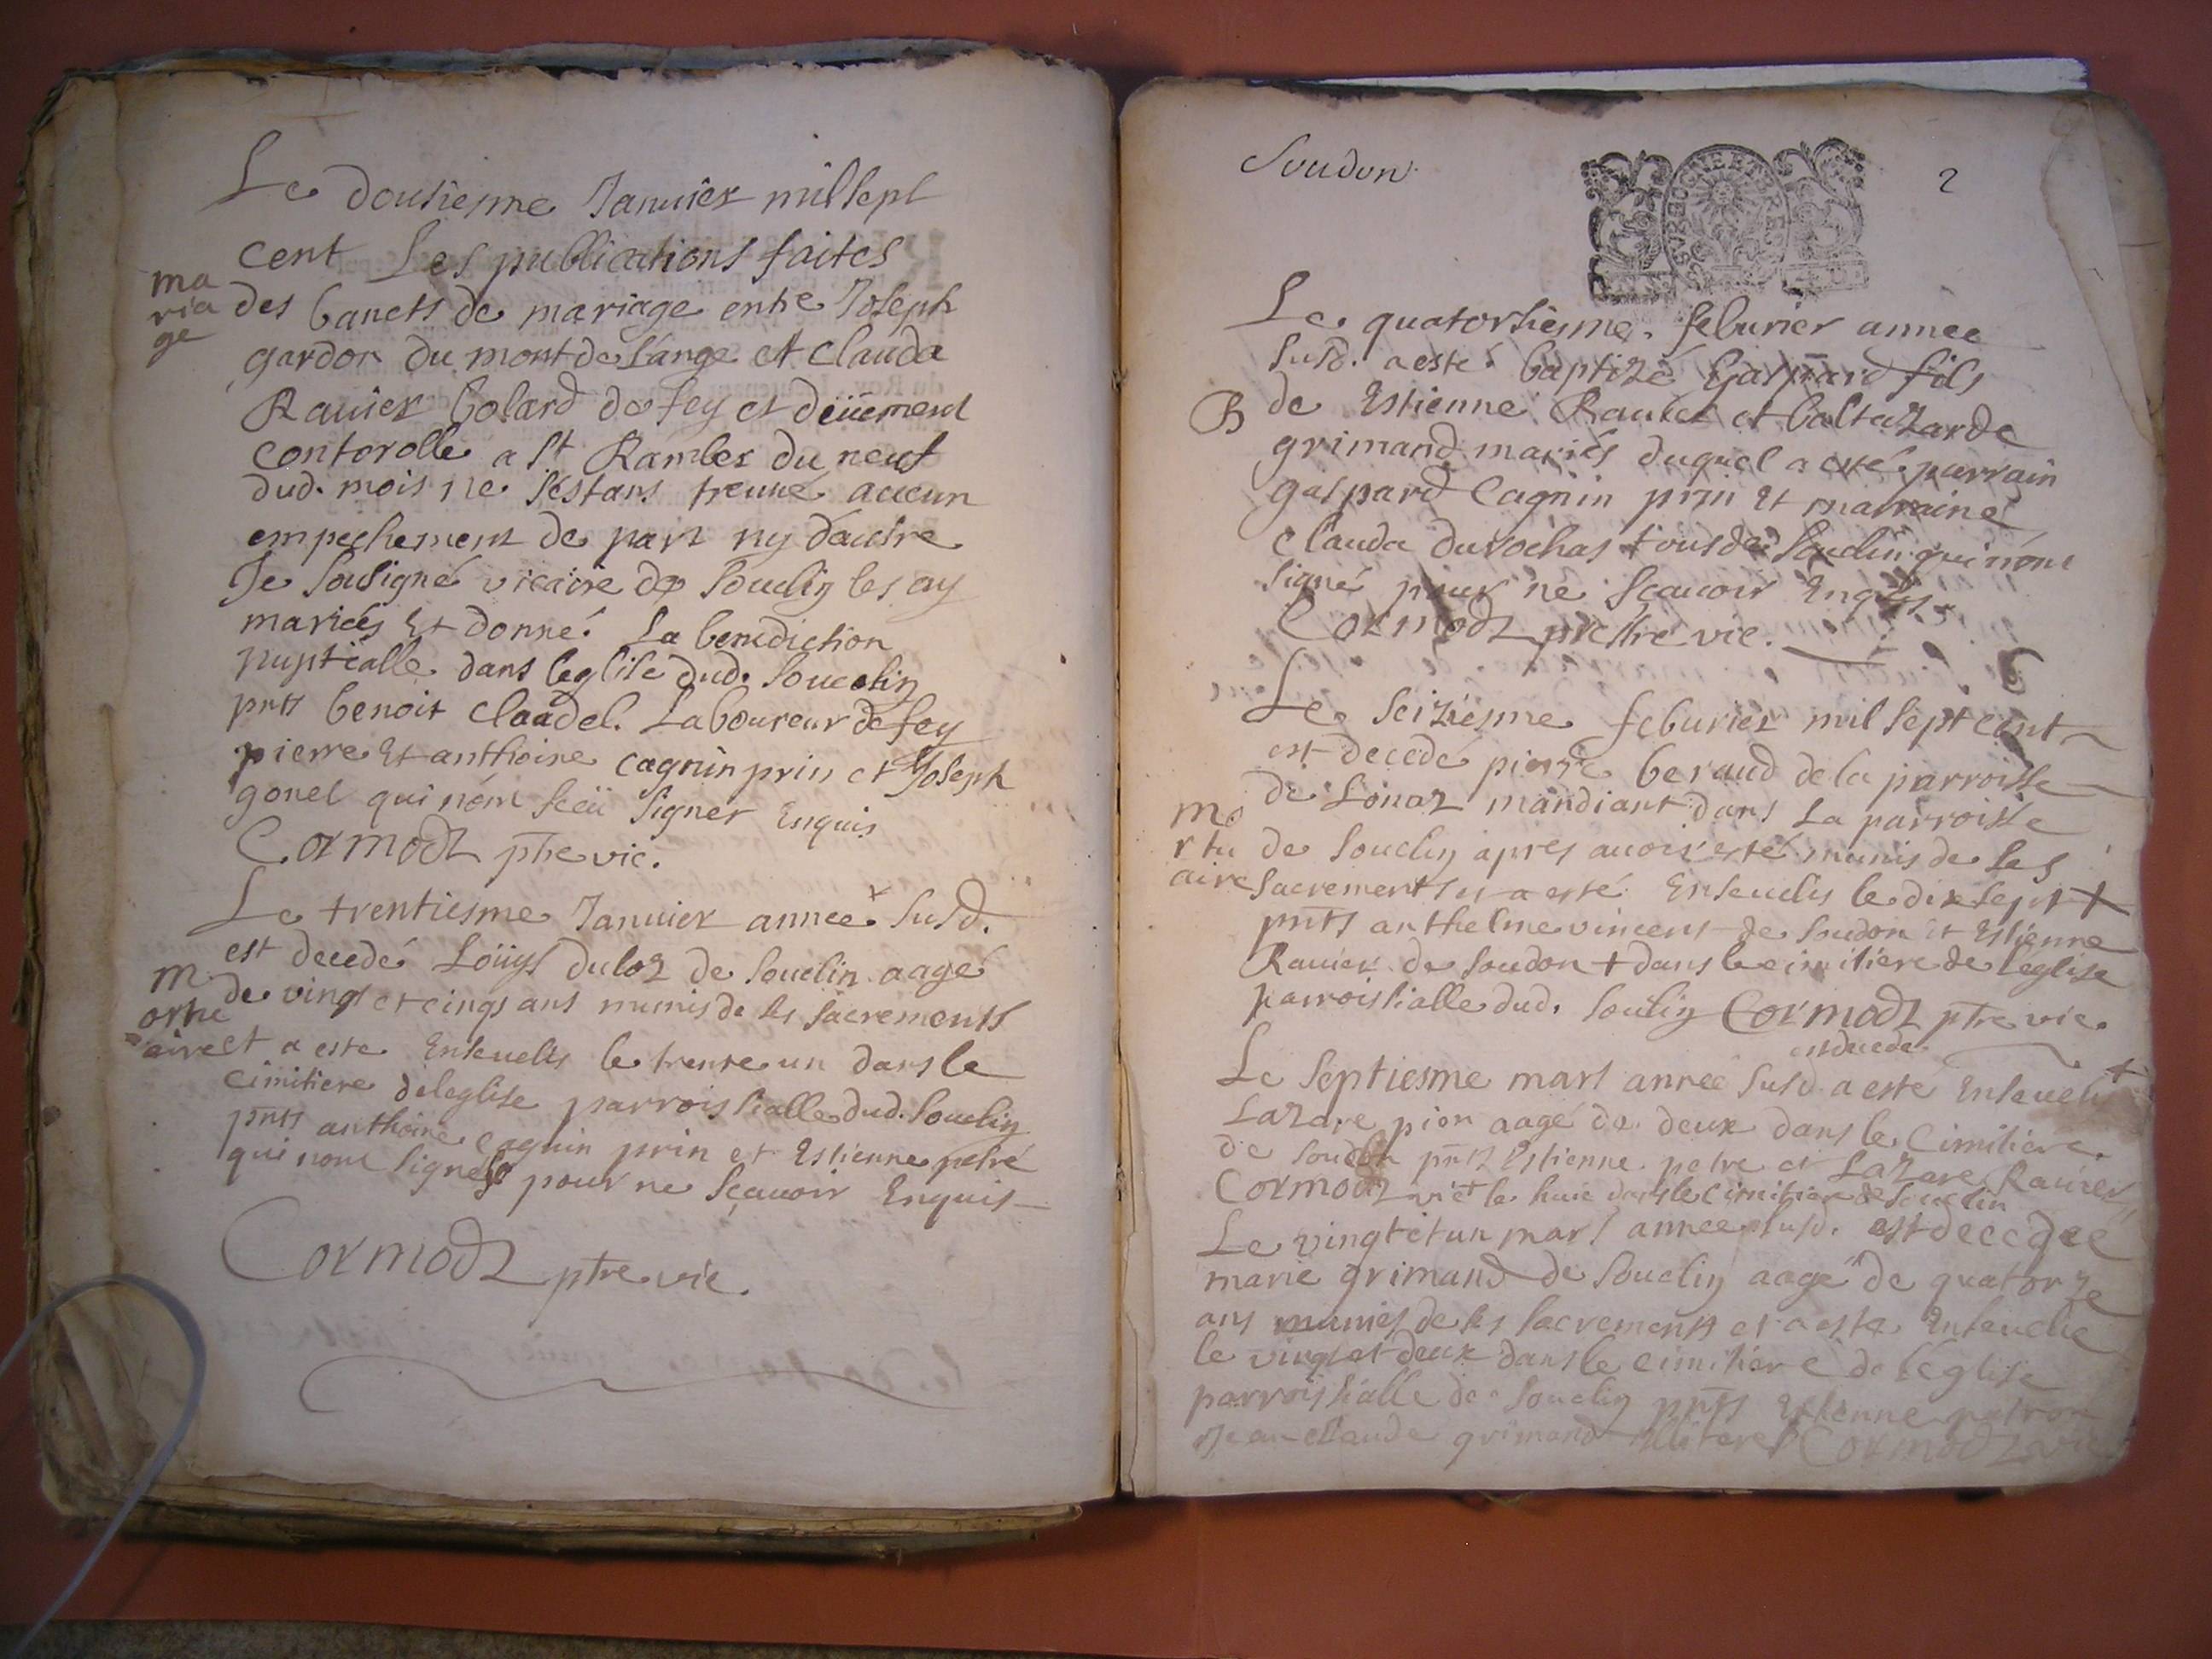 Le dousiesme Januier mil sept
cent Les publications faites
ma
ria
ge
des bancts de mariage entre Joseph
gardon du mont de Lange et Clauda
Rauier bolard de fey et deüement
contorolle a St Rambert du neuf
dud. mois ne s'estans treuué aucun
empechement de part ny dautre
Je sousigné vicaire de souclin les ay
mariés Et donné La benediction
nuptialle dans leglise dud. souclin
pnts benoit claudel Laboureur de fey
pierre Et anthoine cagnin prin et Joseph
gonet qui nont sceü signer Enquis
Cormodz ptre vic.
Le trentiesme Januier année susd.
est decedé Loüys duloz de souclin aagé
m
ortu
aire
de vingt et cinqs ans munis de ses sacrements
et a esté Enseuelis le trente un dans le
cimitiere deleglise parroissialle dud. souclin
pnts anthoine cagnin prin et Estienne petre
qui nont signés pour ne sçauoir Enquis
Cormodz ptre vic.
Soudon
2
BOURGOGNE ET BRESSE
Le quatorsiesme febuvrier annee
susd. a esté baptizé Gaspard fils
B
de Estienne Rauier et baltazarde
grimand mariés duquel a esté parrain
gaspard Cagnin prin Et marraine
Clauda durochas tous de Souclin qui nont
signé pour ne sçauoir Enquis
Cormodz prestre vic.
Le seiziesme feburier mil sept cent
est decedé pierre beraud de la parroisse
de Lonaz mandiant dans La parroisse
mo
rtu
aire
de souclin apres auoir esté munis de ses
sacrements et a esté Enseuelis le dix sept +
pnts anthelme vincent de soudon et Estienne
Rauier de soudon + dans le cimitiere de leglise
parroissialle dud. souclin Cormodz ptre vic.
est decede
Le septiesme mars année susd. a esté Enseueli +
Lazare pion aagé de deux dans le cimitiere
de soudon pnts Estienne petre et Lazare Rauier
Cormodz vic + le huic dans le cimitiere de souclin
Le vingt et un mars annee susd. est decedeé
marie grimand de souclin aagé de quatorze
ans munies de ses sacrements et a esté Enseuelie
le vingt et deux dans le cimitiere de leglise
parroissialle de souclin pnts Estienne patron
Jean Claude grimand illiteres Cormodz vic